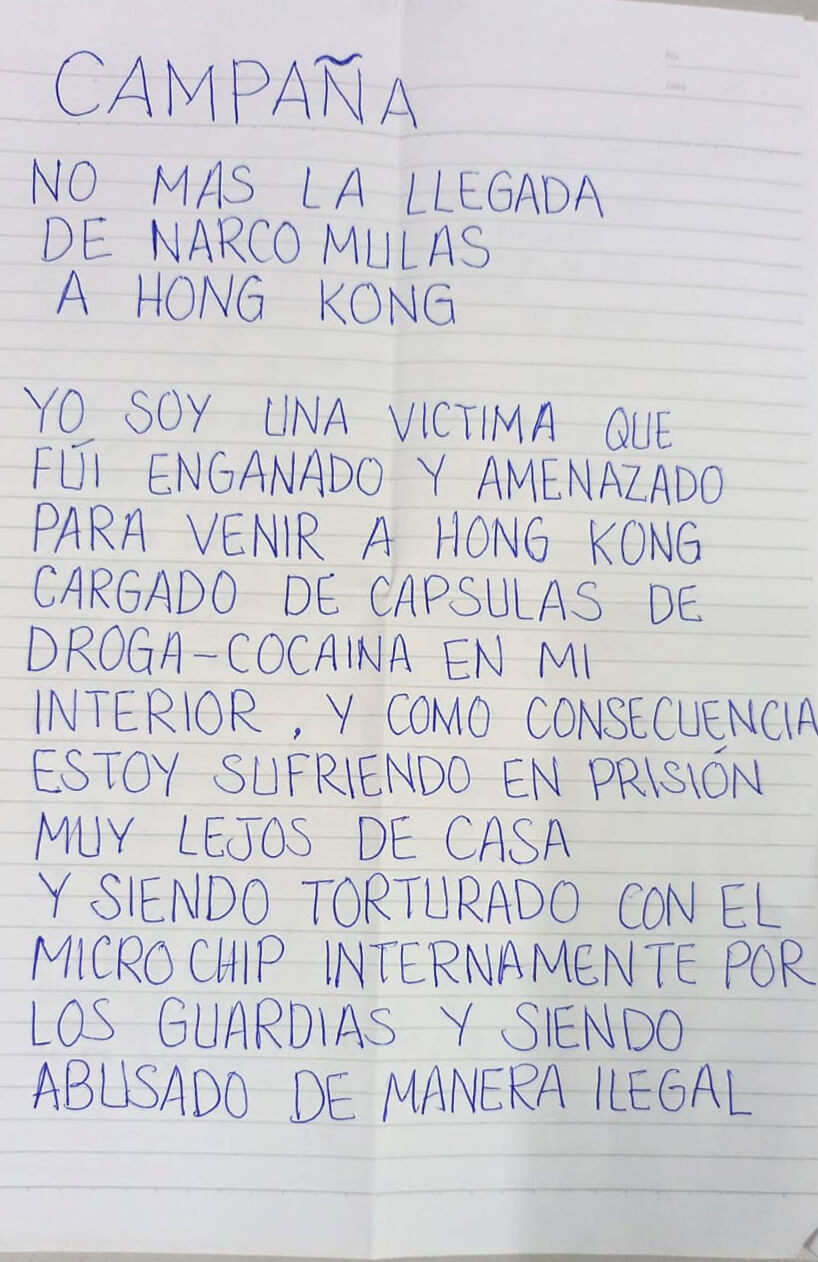 CAMPAÑA
NO MAS LA LLEGADA
DE NARCO MULAS
A HONG KONG
YO SOY UNA VICTIMA QUE
FÚI ENGANADO Y AMENAZADO
PARA VENIR A HONG KONG
CARGADO DE CAPSULAS DE
DROGA-COCAINA EN MI
INTERIOR, Y COMO CONSECUENCIA
ESTOY SUFRIENDO EN PRISIÓN
MUY LEJOS DE CASA
Y SIENDO TORTURADO CON EL
MICRO CHIP INTERNAMENTE POR
LOS GUARDIAS Y SIENDO
ABUSADO DE MANERA ILEGAL